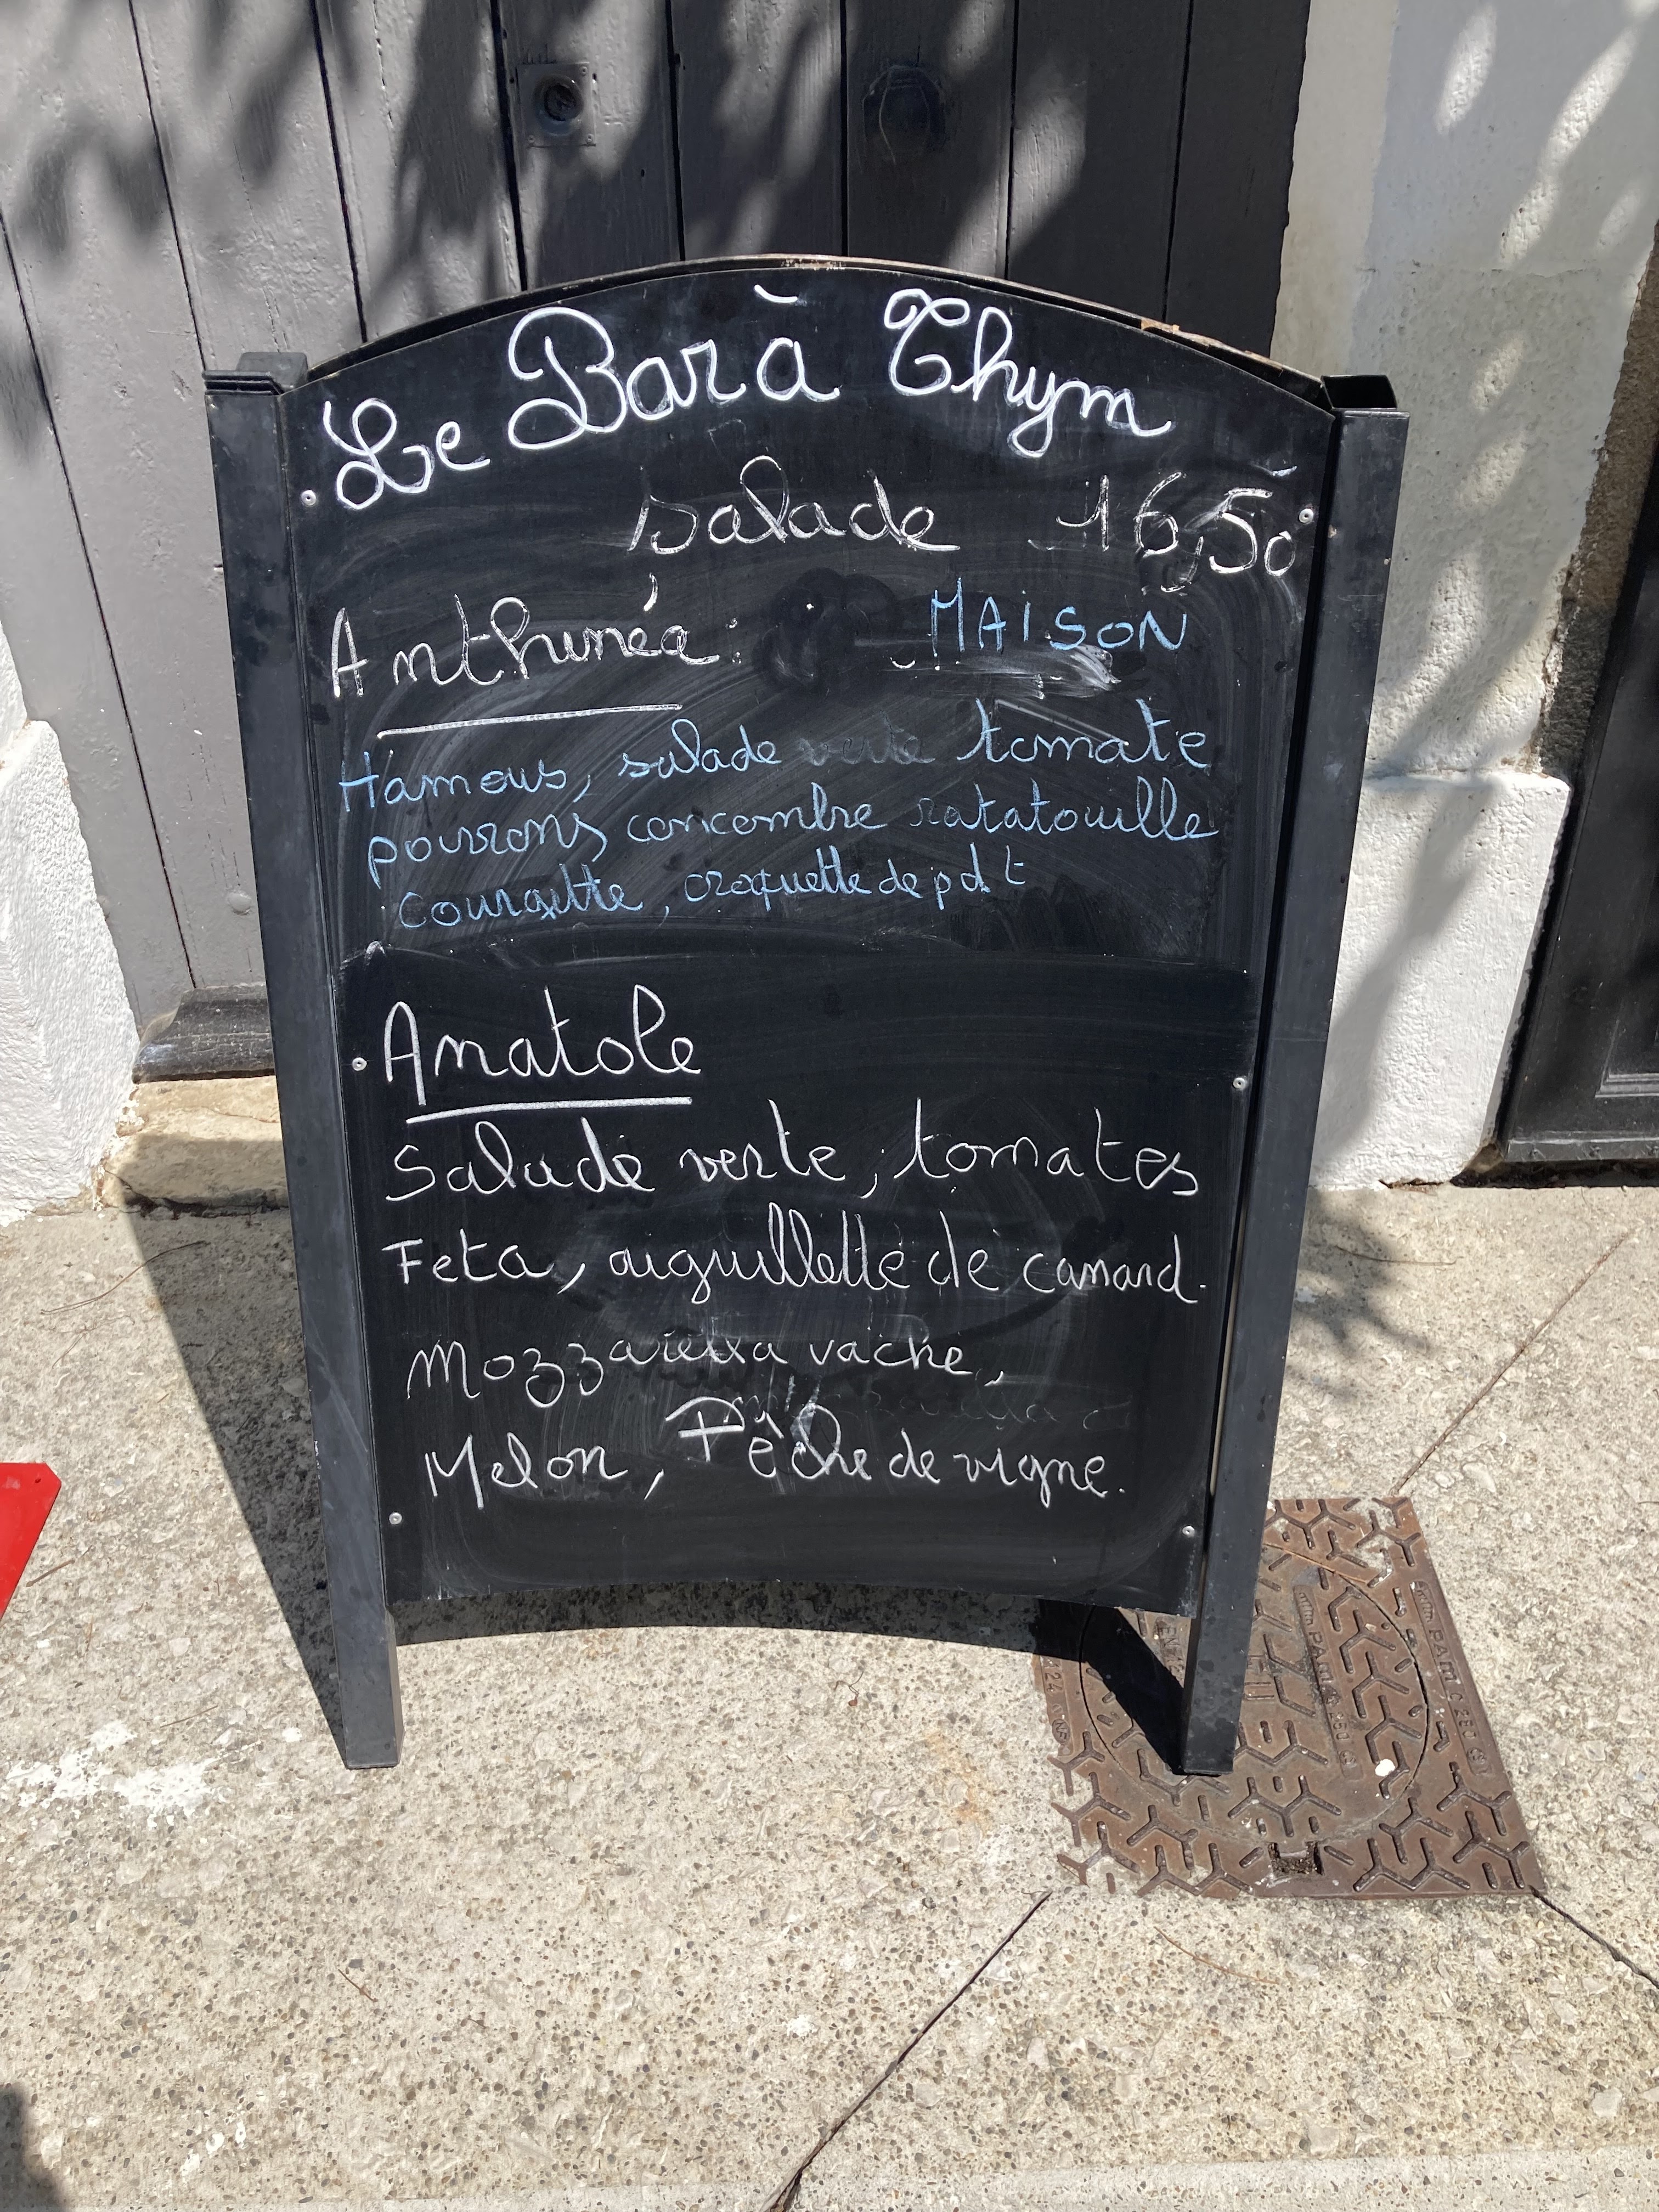 Le Bar à Thym
salade 16,50
Anthinéa : MAISON
Hamous, salade verte tomate
poivrons concombre ratatouille
Courgette, croquette de pd t
Anatole
Salade verte, tomates
Feta, aiguillette de canard.
Mozzarella vache,
Melon, Pêche de vigne.